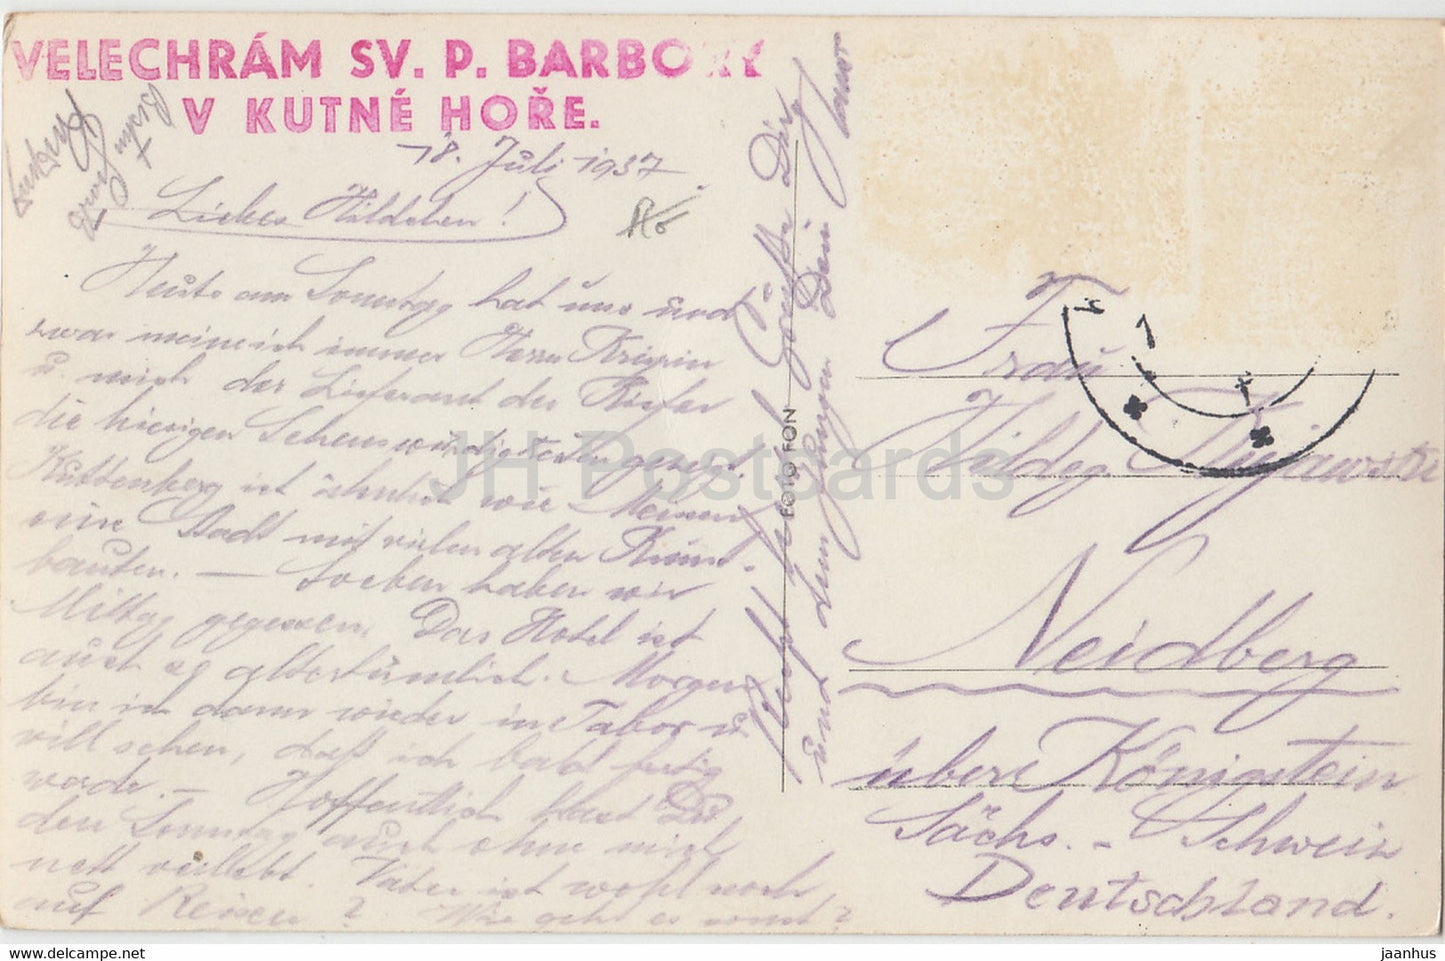 VELECHRÁM SV. P. BARBORY
V KUTNÉ HOŘE.
18. Juli 1937
Liebes Hildchen!
Heute am Sonntag hat uns und
zwar meine ich immer Herrn
u. mich der Lieferant der
die hiesigen Sehenswürdigkeiten gezeigt.
Kuttenberg ist ähnlich wie Meissen
eine Stadt mit vielen alten Kunst-
bauten. — Soeben haben wir
Mittag gegessen. Das Hotel ist
auch so altertümlich. Morgen
bin ich dann wieder in Tabor u.
will sehen, daß ich bald fertig
werde. — Hoffentlich hast Du
den Sonntag auch ohne mich
nett verlebt. Vater ist wohl noch
auf Reisen? Wie geht es sonst?
Recht herzlich Grüße Dir
und dem Jungen Dein
FOTO FON
Frau
Hildeg.
Neidberg
über Königstein
Sächs. - Schweiz
Deutschland.
JH Postcards
jaanhus